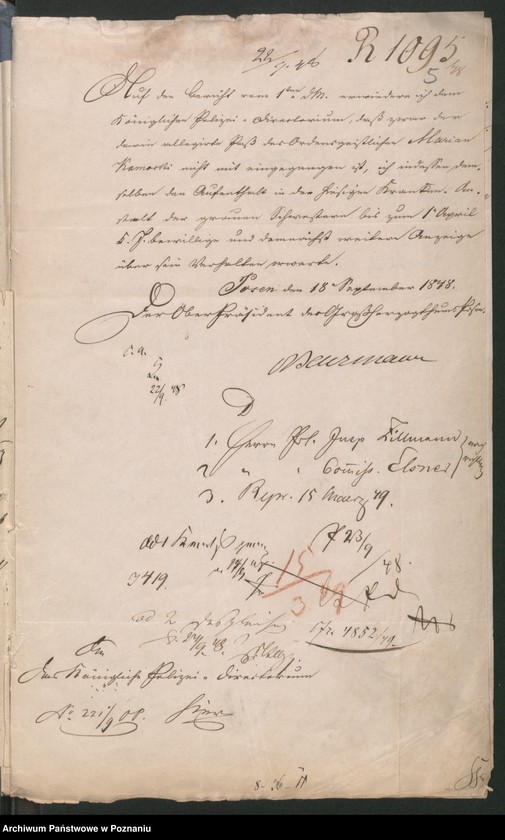 22/9 48
R 1095/48
5
Auf den Bericht vom 1ten d. M. erwiedere ich dem
Königlichen Polizei-Directorium, daß zwar der
darin allegirte Paß des Ordensgeistlichen Marian
Kamocki nicht mit eingegangen ist, ich indessen dem-
selben den Aufenthalt in der hiesigen Kranken-An-
stalt der grauen Schwestern bis zum 1 April
k. J. bewillige und demnächst weitere Anzeige
über sein Verhalten erwarte.
Posen den 18 September 1848.
Der OberPräsident des Großherzogthums Posen.
Beurmann
22/9 48
1. Herrn Pol. Insp Killmann
2 " " Commiss. Elsner
3. Repr. 15 Maerz 49.
23/9 48.
15/3 49
3419.
ad 2 desgleichen
24/9 48.
4852/49.
An
das Königliche Polizei-Directorium
No 221/9 OP. hier
8-16-II
Archiwum Państwowe w Poznaniu